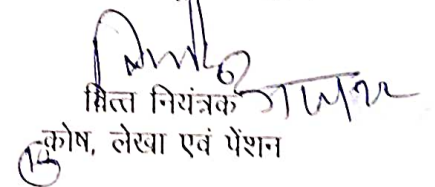 वित्त नियंत्रक
कोष, लेखा एवं पेंशन